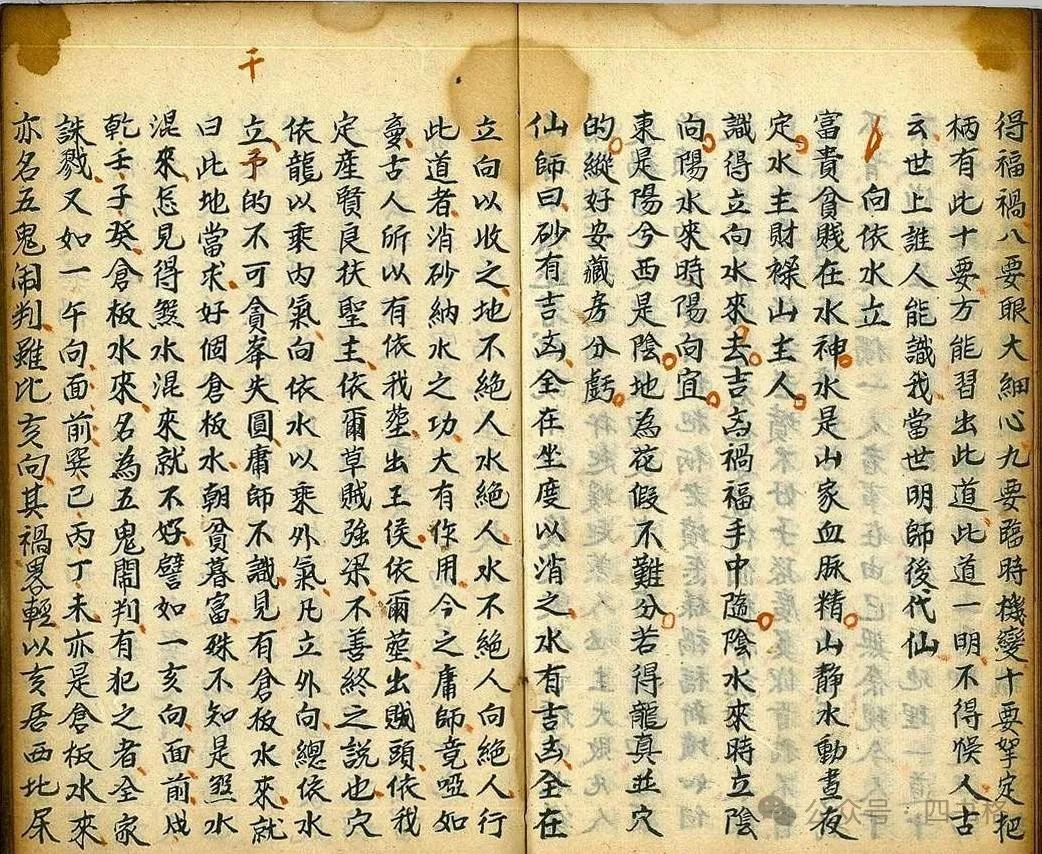 得福禍八要眼大細心九要臨時機變十要拏定把
柄有此十要方能習出此道此道一明不得悞人古
云世上誰人能識我當世明師後代仙
向依水立
富貴貧賤在水神水是山家血脈精山靜水動晝夜
定水主財祿山主人
識得立向水來去吉凶禍福手中隨陰水來時立陰
向陽水來時陽向宜
東是陽兮西是陰地為花假不難分若得龍真並穴
的縱好安藏房分虧
仙師曰砂有吉凶全在坐度以消之水有吉凶全在
立向以收之地不絕人水絕人水不絕人向絕人行
此道者消砂納水之功大有作用今之庸師竟啞如
古人所以有依我塟出王侯依爾塟出賊頭依我
定產賢良扶聖主依爾草賊強梁不善終之說也穴
依龍以乘內氣向依水以乘外氣凡立外向總依水
立予的不可貪峯失圓庸師不識見有倉板水來就
曰此地當求好個倉板水朝貧暮富殊不知是煞水
混來怎見得煞水混來就不好譬如一亥向面前戌
乾壬子癸倉板水來名為五鬼鬧判有犯之者全家
誅戮又如一午向面前巽巳丙丁未亦是倉板水來
亦名五鬼鬧判雖比亥向其禍畧輕以亥居西北屎
千
公众号：四